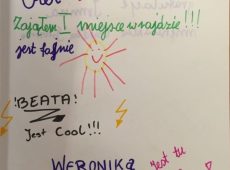 Zająłem I miejsce w rajdzie!!!
jest fajnie
!BEATA!
Jest Cool!!!
WERONIKA
Jest tu